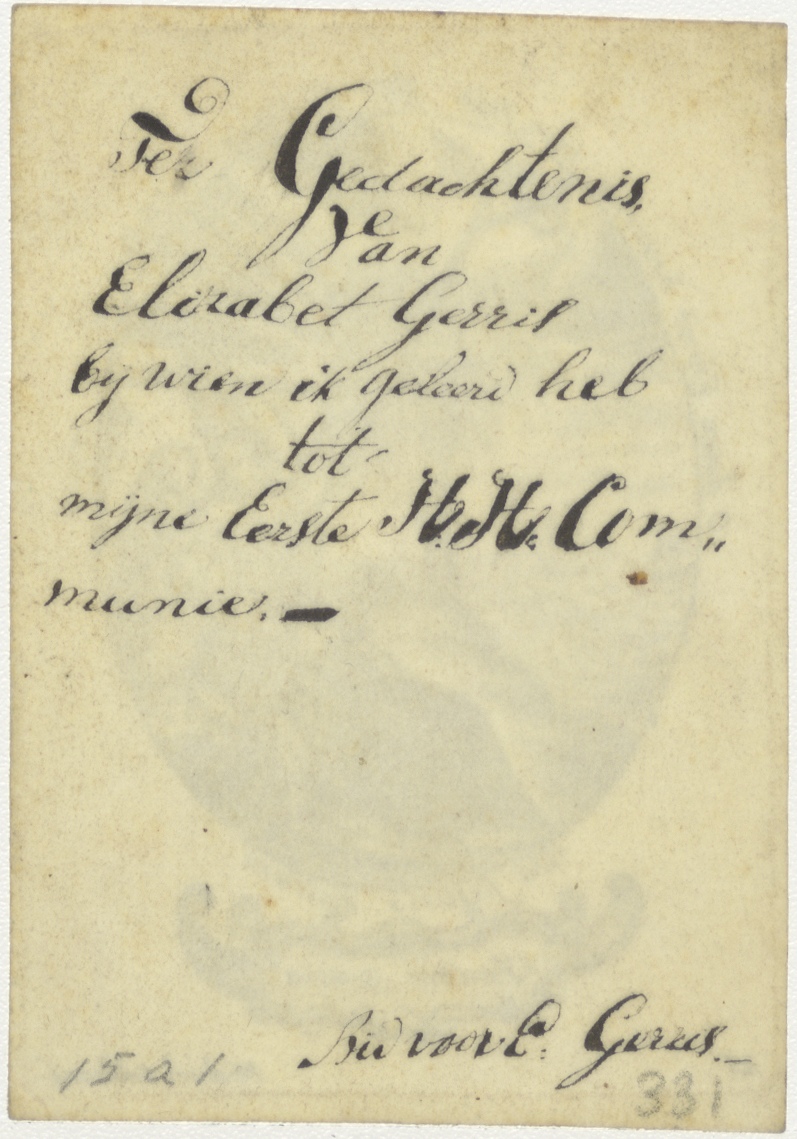 Ter Gedachtenis,
Van
Elizabet Gerris
by wien ik geleerd heb
tot
mijne Eerste H.H. Com„
munie. —
Bid voor E. Gerris. —
15 a 1
331